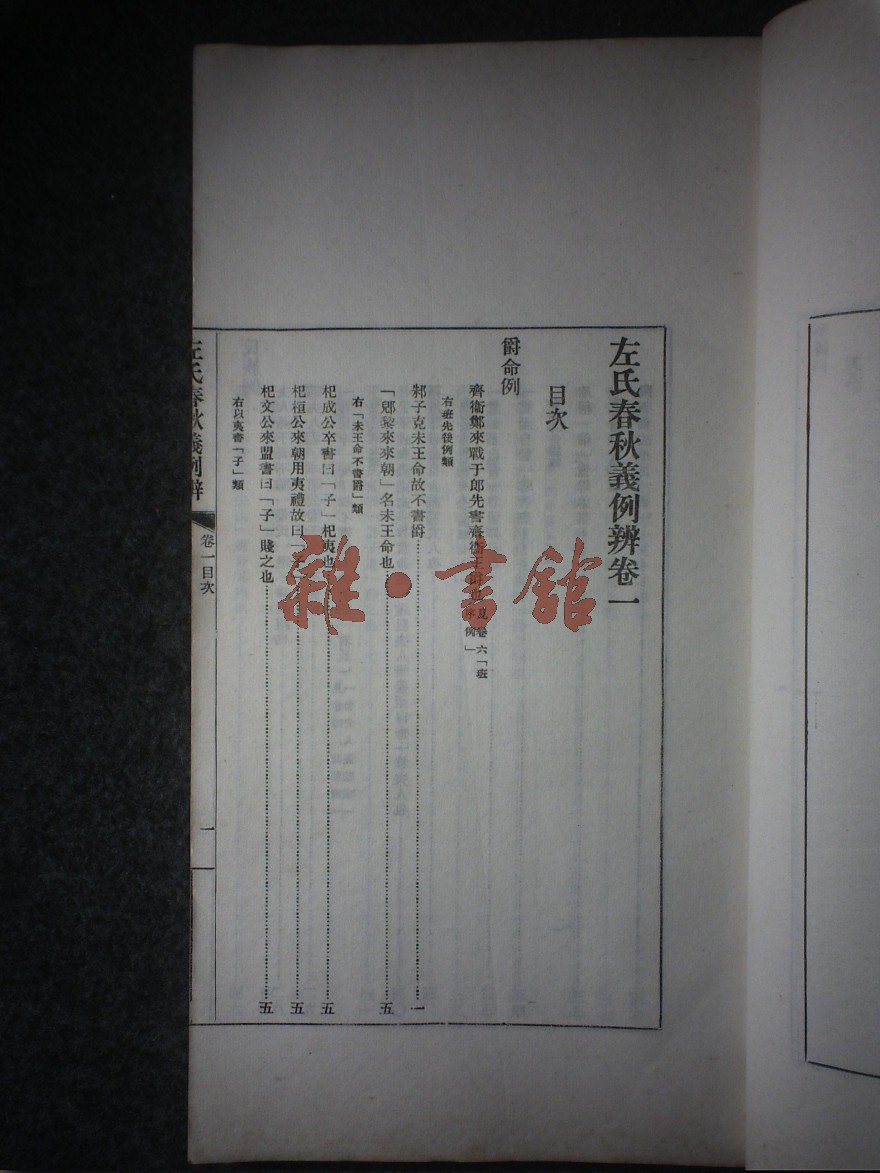 左氏春秋義例辨卷一
目次
爵命例
齊衞鄭來戰于郎先書齊衞王爵也 見卷六「班序例」
右班先後例類
邾子克未王命故不書爵……一
「郳黎來來朝」名未王命也……五
右「未王命不書爵」類
杞成公卒書曰「子」杞夷也……五
杞桓公來朝用夷禮故曰「子」……五
杞文公來盟書曰「子」賤之也……五
右以夷書「子」類
左氏春秋義例辨
卷一目次
一
雜·書館